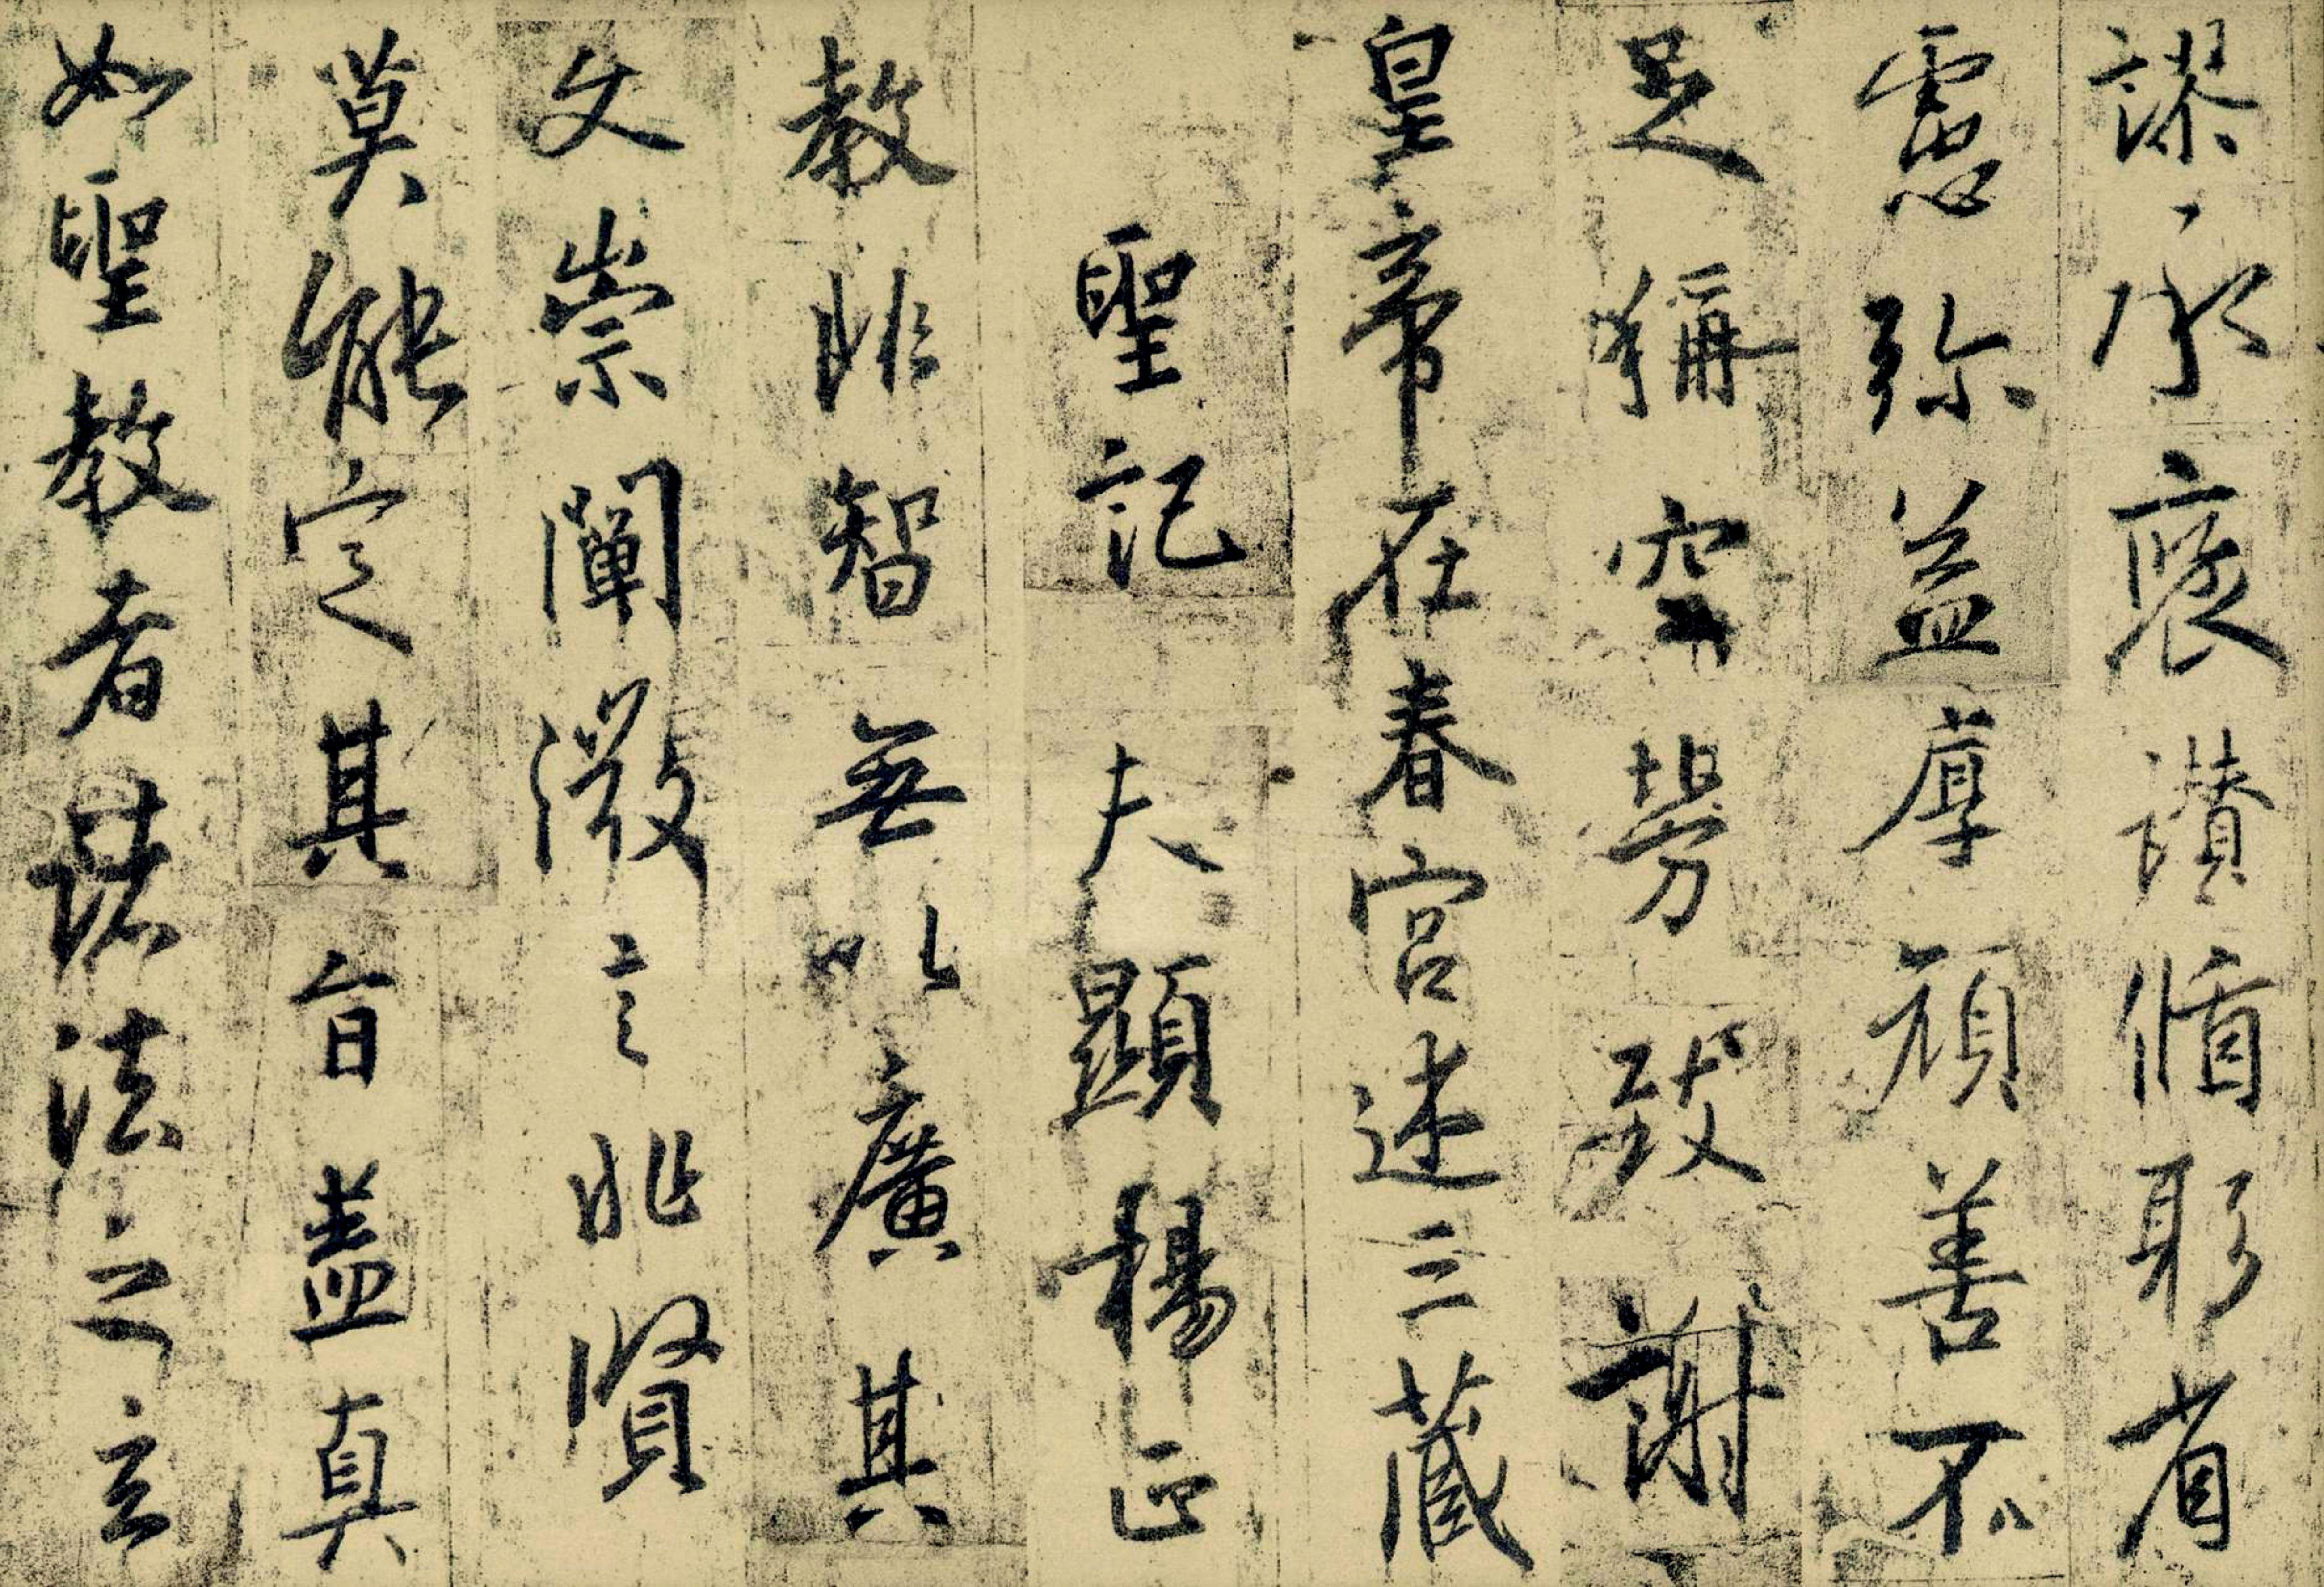 謬承褒讚循躬省
慮弥益厚顏善不
足稱空勞致謝
皇帝在春宮述三藏
聖記夫顯揚正
教非智無以廣其
文崇闡微言非賢
莫能定其旨蓋真
如聖教者諸法之玄